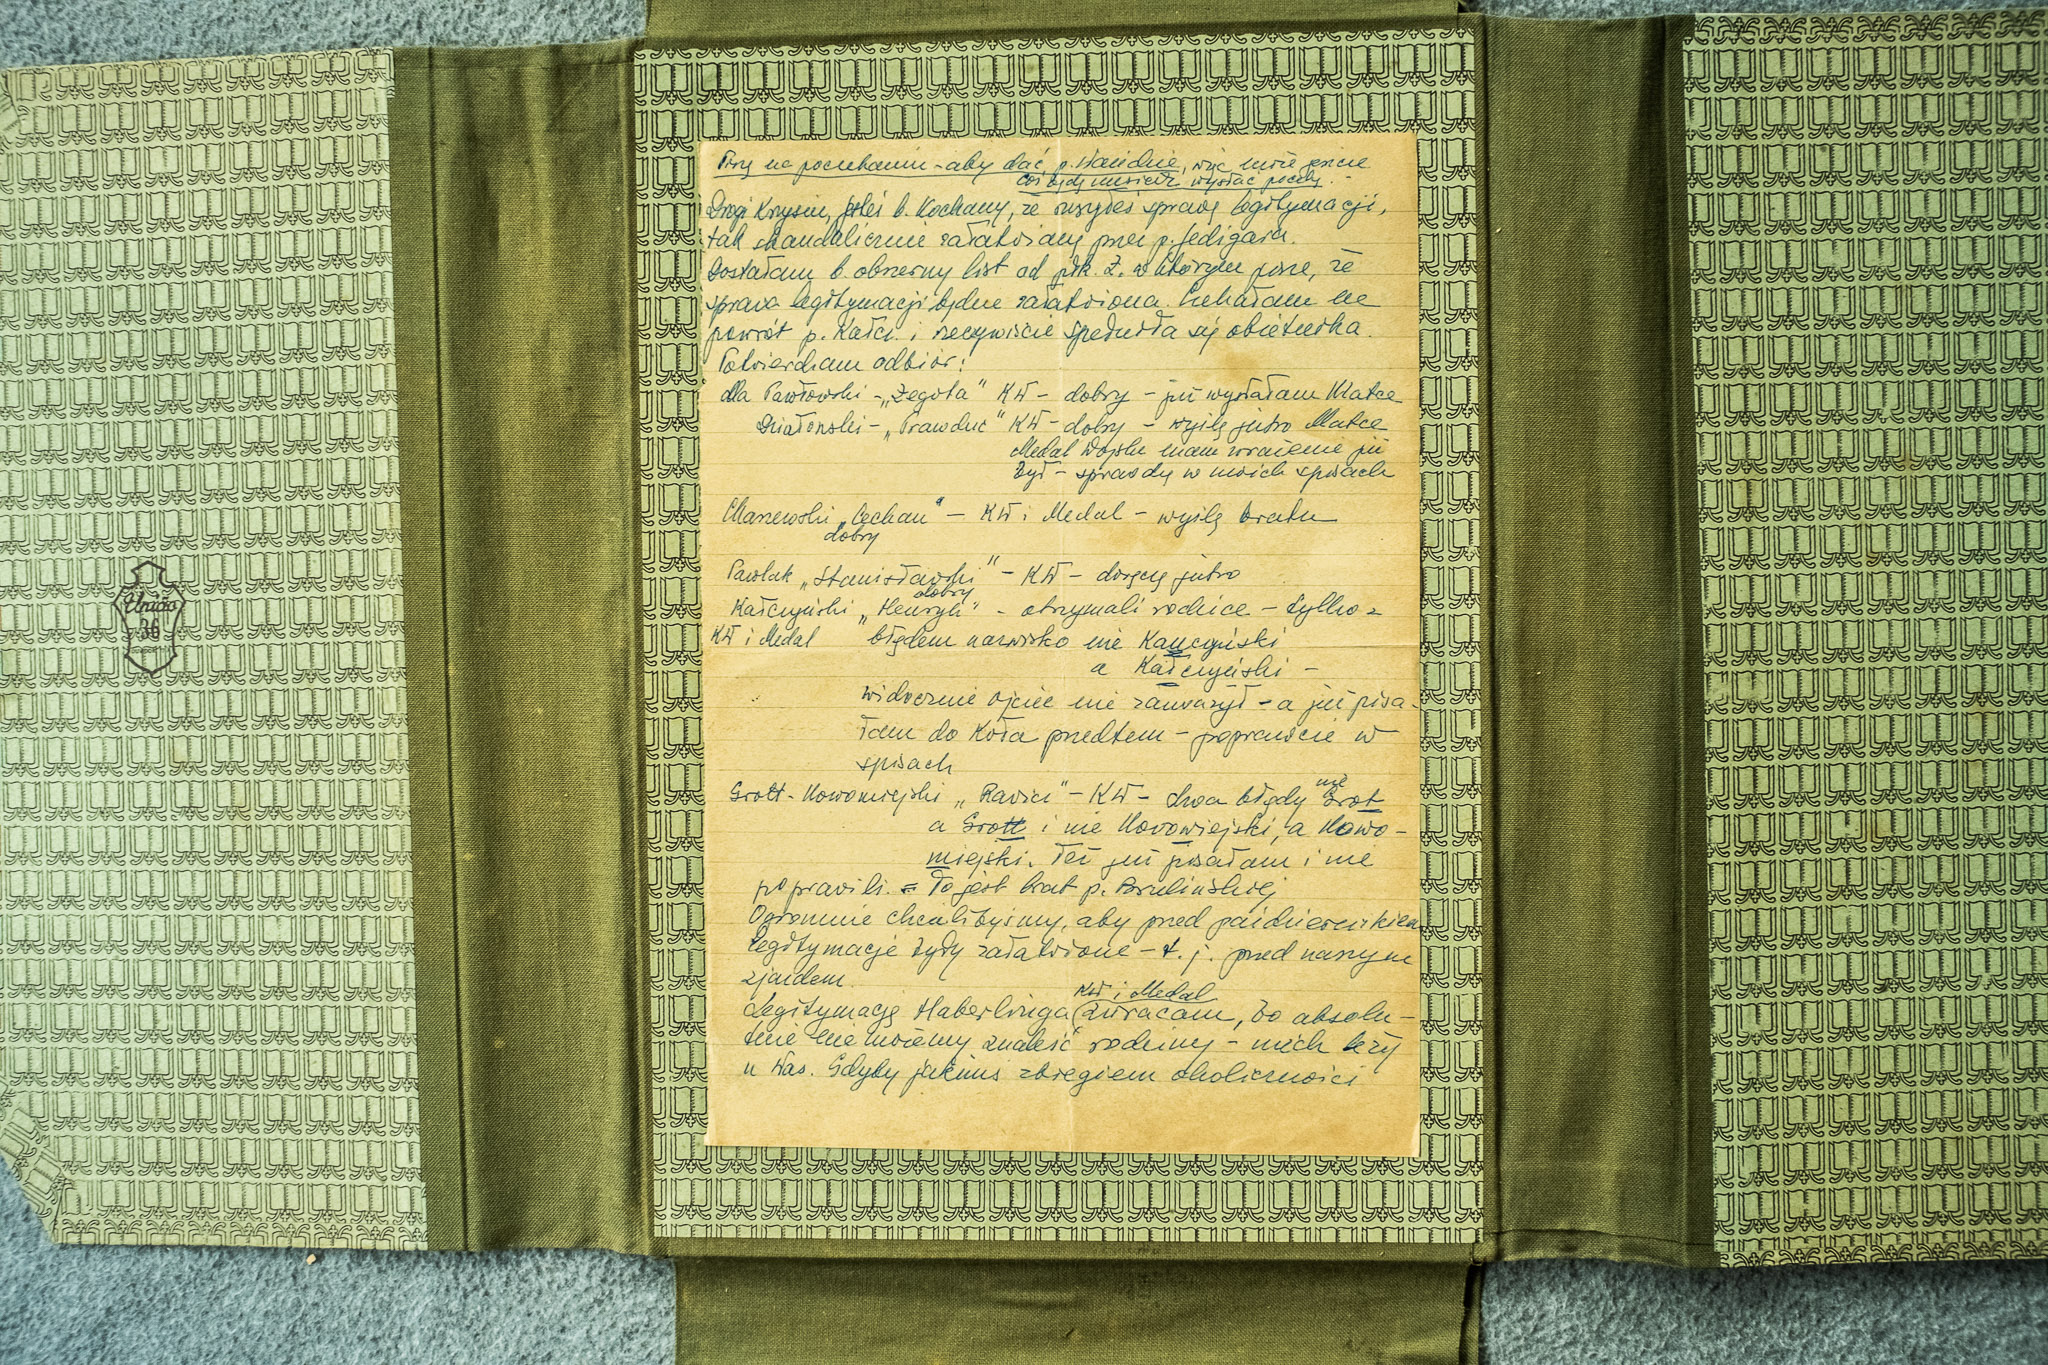 na poczekaniu - aby dać p. Wandzie, więc może jeszcze
coś będę mieć wysłać pocztą. -
Drogi Krysiu, jesteś b. Kochany, że ruszyłeś sprawę legitymacji,
tak skandalicznie załatwianą przez p. Jedigara.
Dostałam b. obszerny list od płk. Ż. w którym pisze, że
sprawa legitymacji będzie załatwiona. Czekałam na
powrót p. Kałcz. i rzeczywiście spełniła się obietnica.
Potwierdzam odbiór:
dla Pawłowski - „Żegota" KW - dobry - już wysłałam Matce
Działoński - „Prawdzic" KW - dobry - wyślę jutro Matce
Medal Wojska mam wrażenie już
był - sprawdzę w moich spisach
Maszewski „Cechan" - KW i Medal - wyślę bratu
dobry
Pawlak „Stanisławski" - KW - doręczę jutro
dobry
Kałczyński „Henryk" - otrzymali rodzice - tylko z
KW i Medal błędem nazwisko nie Kauczyński
a Kałczyński -
widocznie ojciec nie zauważył - a już pisa-
łam do Koła przedtem - poprawcie w
spisach
Grott-Nowomiejski „Rawicz" - KW - dwa błędy nie Grot
a Grott i nie Nowowiejski, a Nowo-
miejski. Też już pisałam i nie
poprawili. = To jest brat p.
Ogromnie chcielibyśmy, aby przed październikiem
legitymacje były załatwione - t. j. przed naszym
zjazdem.
KW i Medal
Legitymację Haberlinga zwracam, bo absolu-
tnie nie możemy znaleść rodziny - niech leży
u Was. Gdyby jakimś zbiegiem okoliczności
União
36